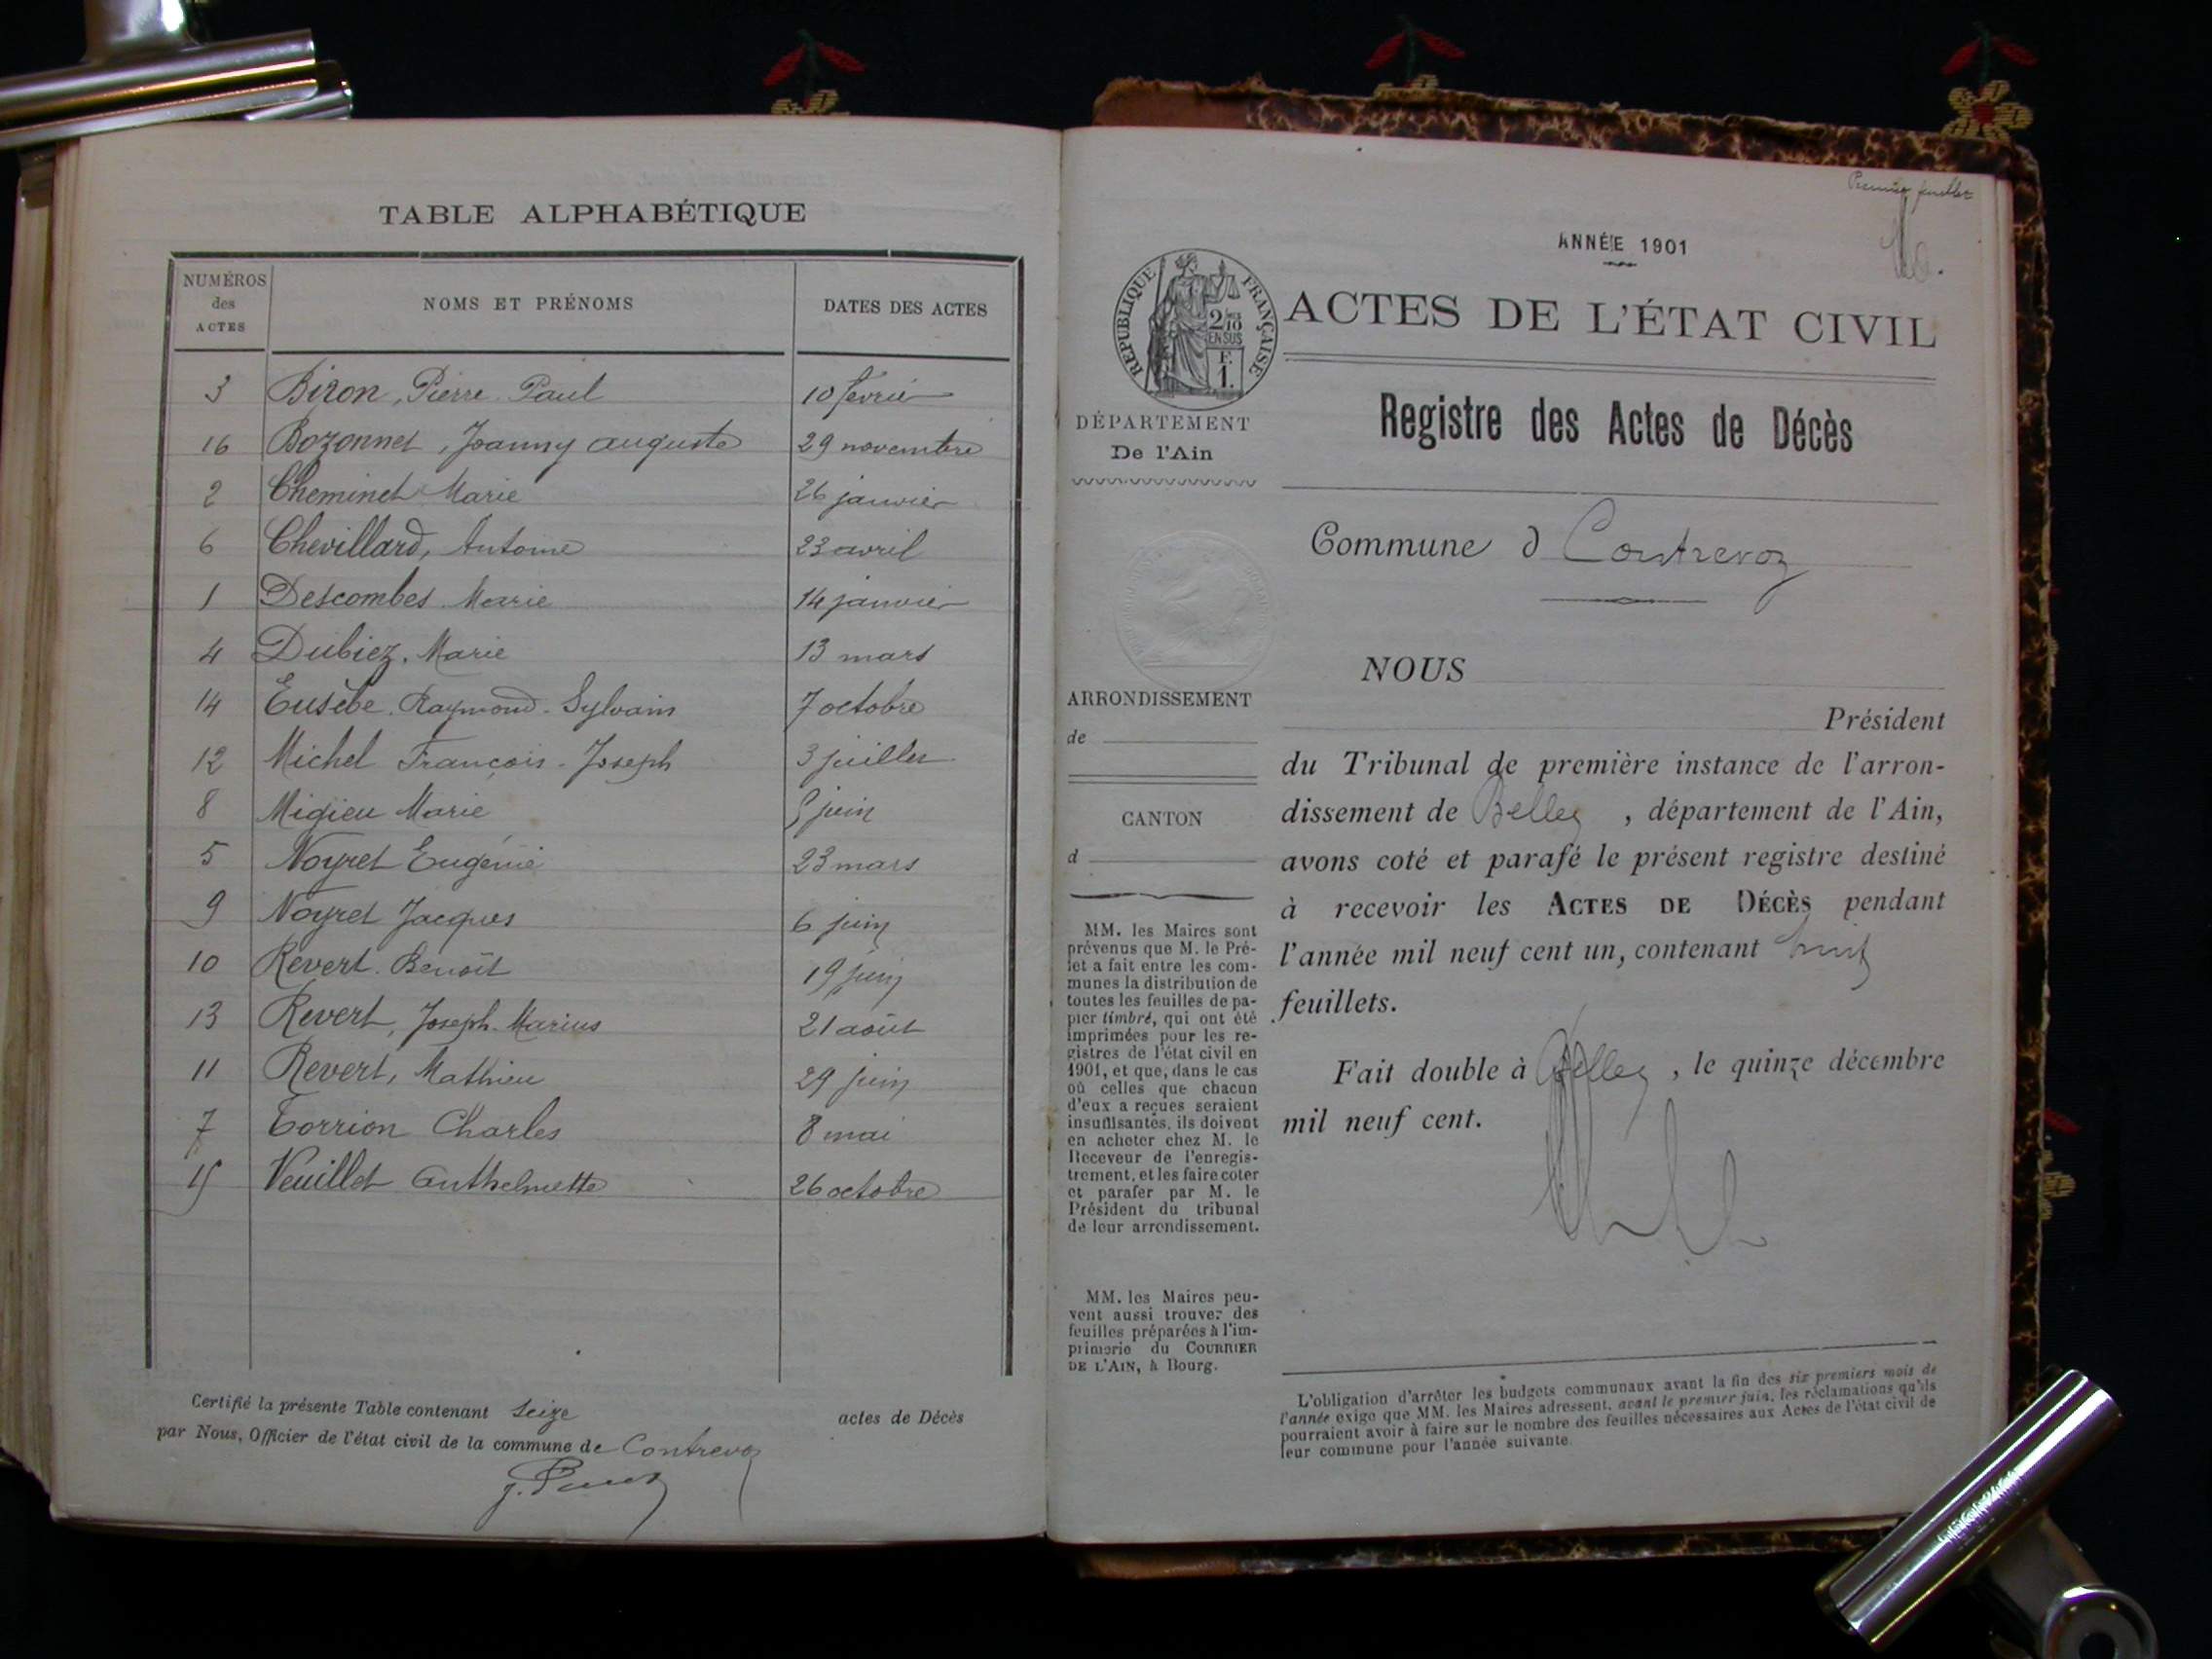 TABLE ALPHABÉTIQUE
NUMÉROS
des
ACTES
NOMS ET PRÉNOMS
DATES DES ACTES
3 Bizon, Pierre Paul 10 février
16 Bozonnet, Joanny auguste 29 novembre
2 Cheminet Marie 26 janvier
6 Chevillard, Antoine 23 avril
1 Descombes Marie 14 janvier
4 Dubiez. Marie 13 mars
14 Eusèbe. Raymond. Sylvain 7 octobre
12 Michel François-Joseph 3 juillet
8 Migieu Marie 5 juin
5 Noyret Eugénie 23 mars
9 Noyret Jacques 6 juin
10 Revert. Benoît 19 juin
13 Revert, Joseph-Marius 21 août
11 Revert, Mathieu 29 juin
7 Torrion Charles 8 mai
15 Veuillet Anthelmette 26 octobre
Certifié la présente Table contenant Seize actes de Décès
par Nous, Officier de l'état civil de la commune de Contrevoz
Premier feuillet
ANNÉE 1901
RÉPUBLIQUE FRANÇAISE
2/10
EN SUS
F.
1.
ACTES DE L'ÉTAT CIVIL
DÉPARTEMENT
De l'Ain
Registre des Actes de Décès
Commune d Contrevoz
NOUS
Président
du Tribunal de première instance de l'arron-
dissement de Belley, département de l'Ain,
avons coté et parafé le présent registre destiné
à recevoir les ACTES DE DÉCÈS pendant
l'année mil neuf cent un, contenant huit
feuillets.
Fait double à Belley, le quinze décembre
mil neuf cent.
ARRONDISSEMENT
de
CANTON
d
MM. les Maires sont
prévenus que M. le Pré-
fet a fait entre les com-
munes la distribution de
toutes les feuilles de pa-
pier timbré, qui ont été
imprimées pour les re-
gistres de l'état civil en
1901, et que, dans le cas
où celles que chacun
d'eux a reçues seraient
insuffisantes, ils doivent
en acheter chez M. le
Receveur de l'enregis-
trement, et les faire coter
et parafer par M. le
Président du tribunal
de leur arrondissement.
MM. les Maires peu-
vent aussi trouver des
feuilles préparées à l'im-
primerie du COURRIER
DE L'AIN, à Bourg.
L'obligation d'arrêter les budgets communaux avant la fin des six premiers mois de
l'année exige que MM. les Maires adressent, avant le premier juin, les réclamations qu'ils
pourraient avoir à faire sur le nombre des feuilles nécessaires aux Actes de l'état civil de
leur commune pour l'année suivante.